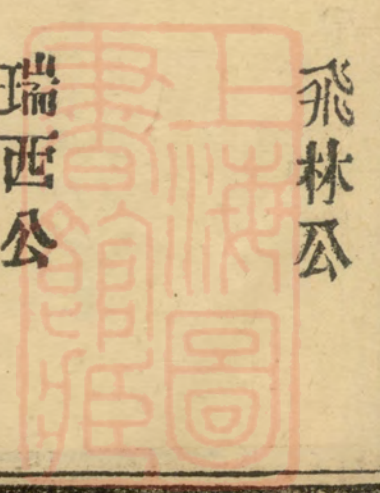 飛林公
瑞西公
上海圖
書館藏